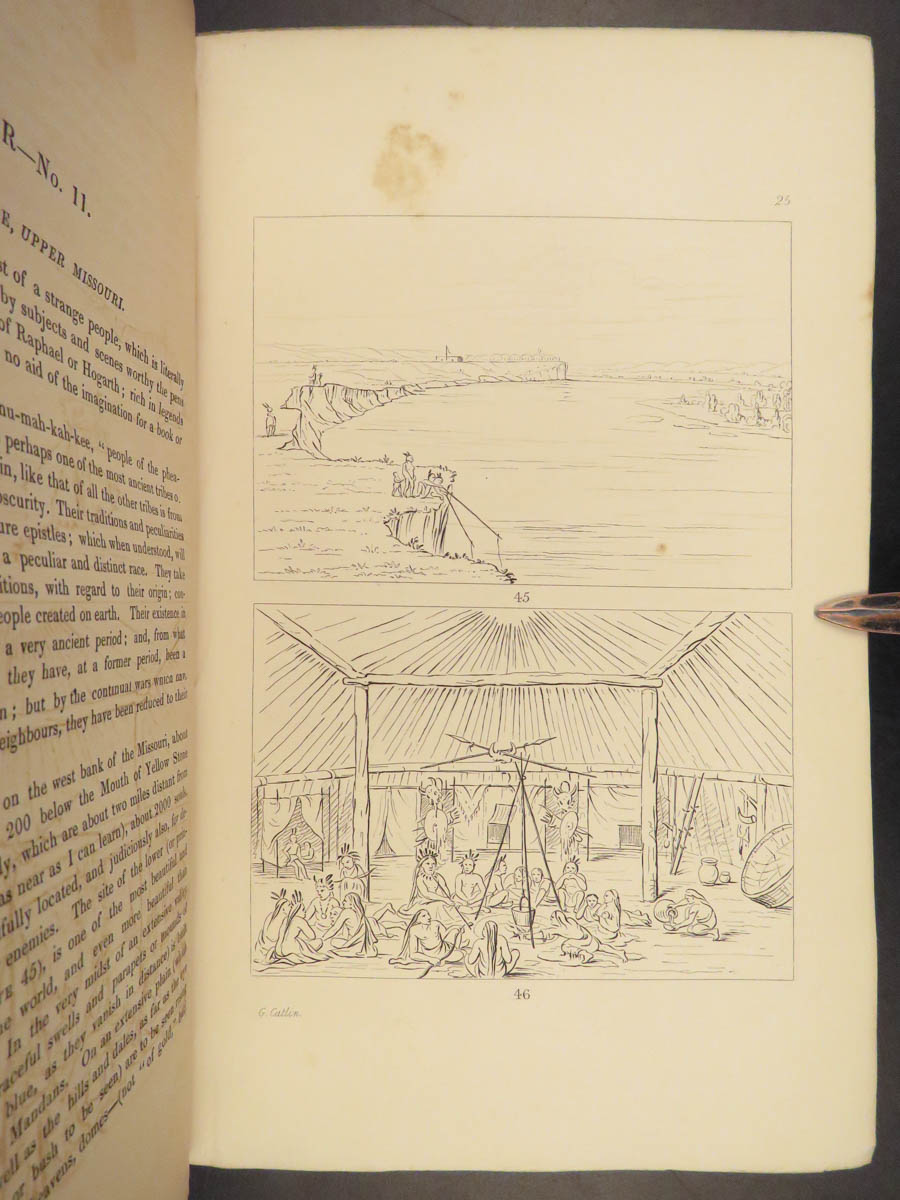 R—No. 11.
E, UPPER MISSOURI.
st of a strange people, which is literally
by subjects and scenes worthy the pens
of Raphael or Hogarth; rich in legends
no aid of the imagination for a book or
nu-mah-kah-kee, "people of the phea-
perhaps one of the most ancient tribes o
in, like that of all the other tribes is from
bscurity. Their traditions and peculiarities
ure epistles; which when understood, will
a peculiar and distinct race. They take
itions, with regard to their origin; con-
eople created on earth. Their existence in
a very ancient period; and, from what
they have, at a former period, been a
n; but by the continual wars which
eighbours, they have been reduced to their
on the west bank of the Missouri, about
200 below the Mouth of Yellow Stone
ly, which are about two miles distant from
as near as I can learn), about 2000 souls.
fully located, and judiciously also, for de-
enemies. The site of the lower (or
TE 45), is one of the most beautiful and
he world, and even more beautiful than
In the very midst of an extensive valley
raceful swells and parapets or mounds of
blue, as they vanish in distance) is
Mandans. On an extensive plain
ell as the hills and dales, as far as the eye
or bush to be seen) are to be seen
eavens, domes—(not "of gold,"
25
45
46
G. Catlin.